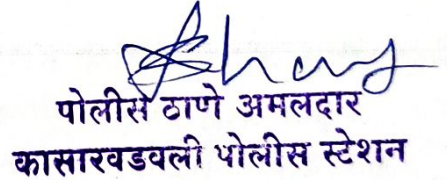 पोलीस ठाणे अमलदार
कासारवडवली पोलीस स्टेशन